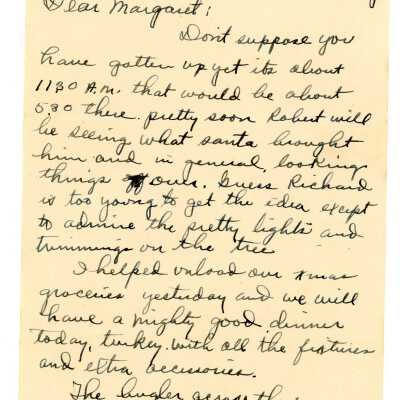 Dear Margaret;
Don't suppose you
have gotten up yet its about
1130 A.M. that would be about
530 there. pretty soon Robert will
be seeing what santa brought
him and in general, looking
things over. Guess Richard
is too young to get the idea except
to admire the pretty lights and
trimmings on the tree
I helped unload our xmas
groceries yesterday and we will
have a mighty good dinner
today, turkey with all the fixtures
and extra accessories.
The bugler across the